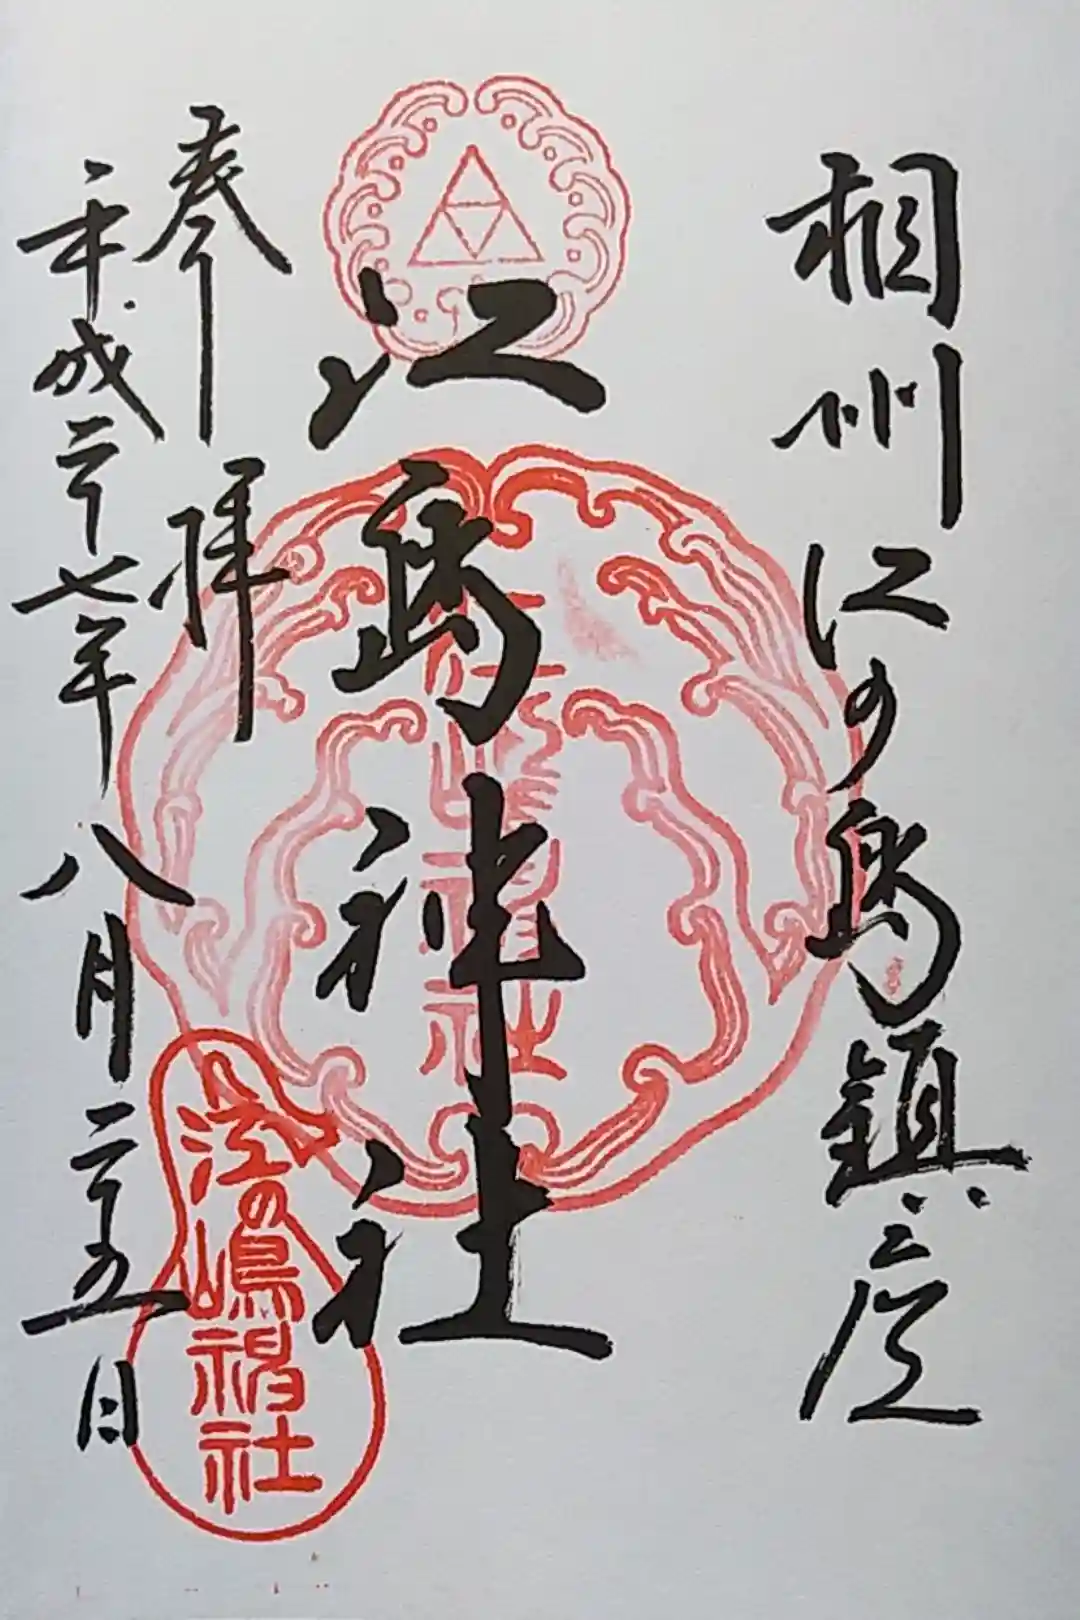 相州江の島鎮座
江島神社
参拝
平成二十七年八月二十五日
江の嶋神社